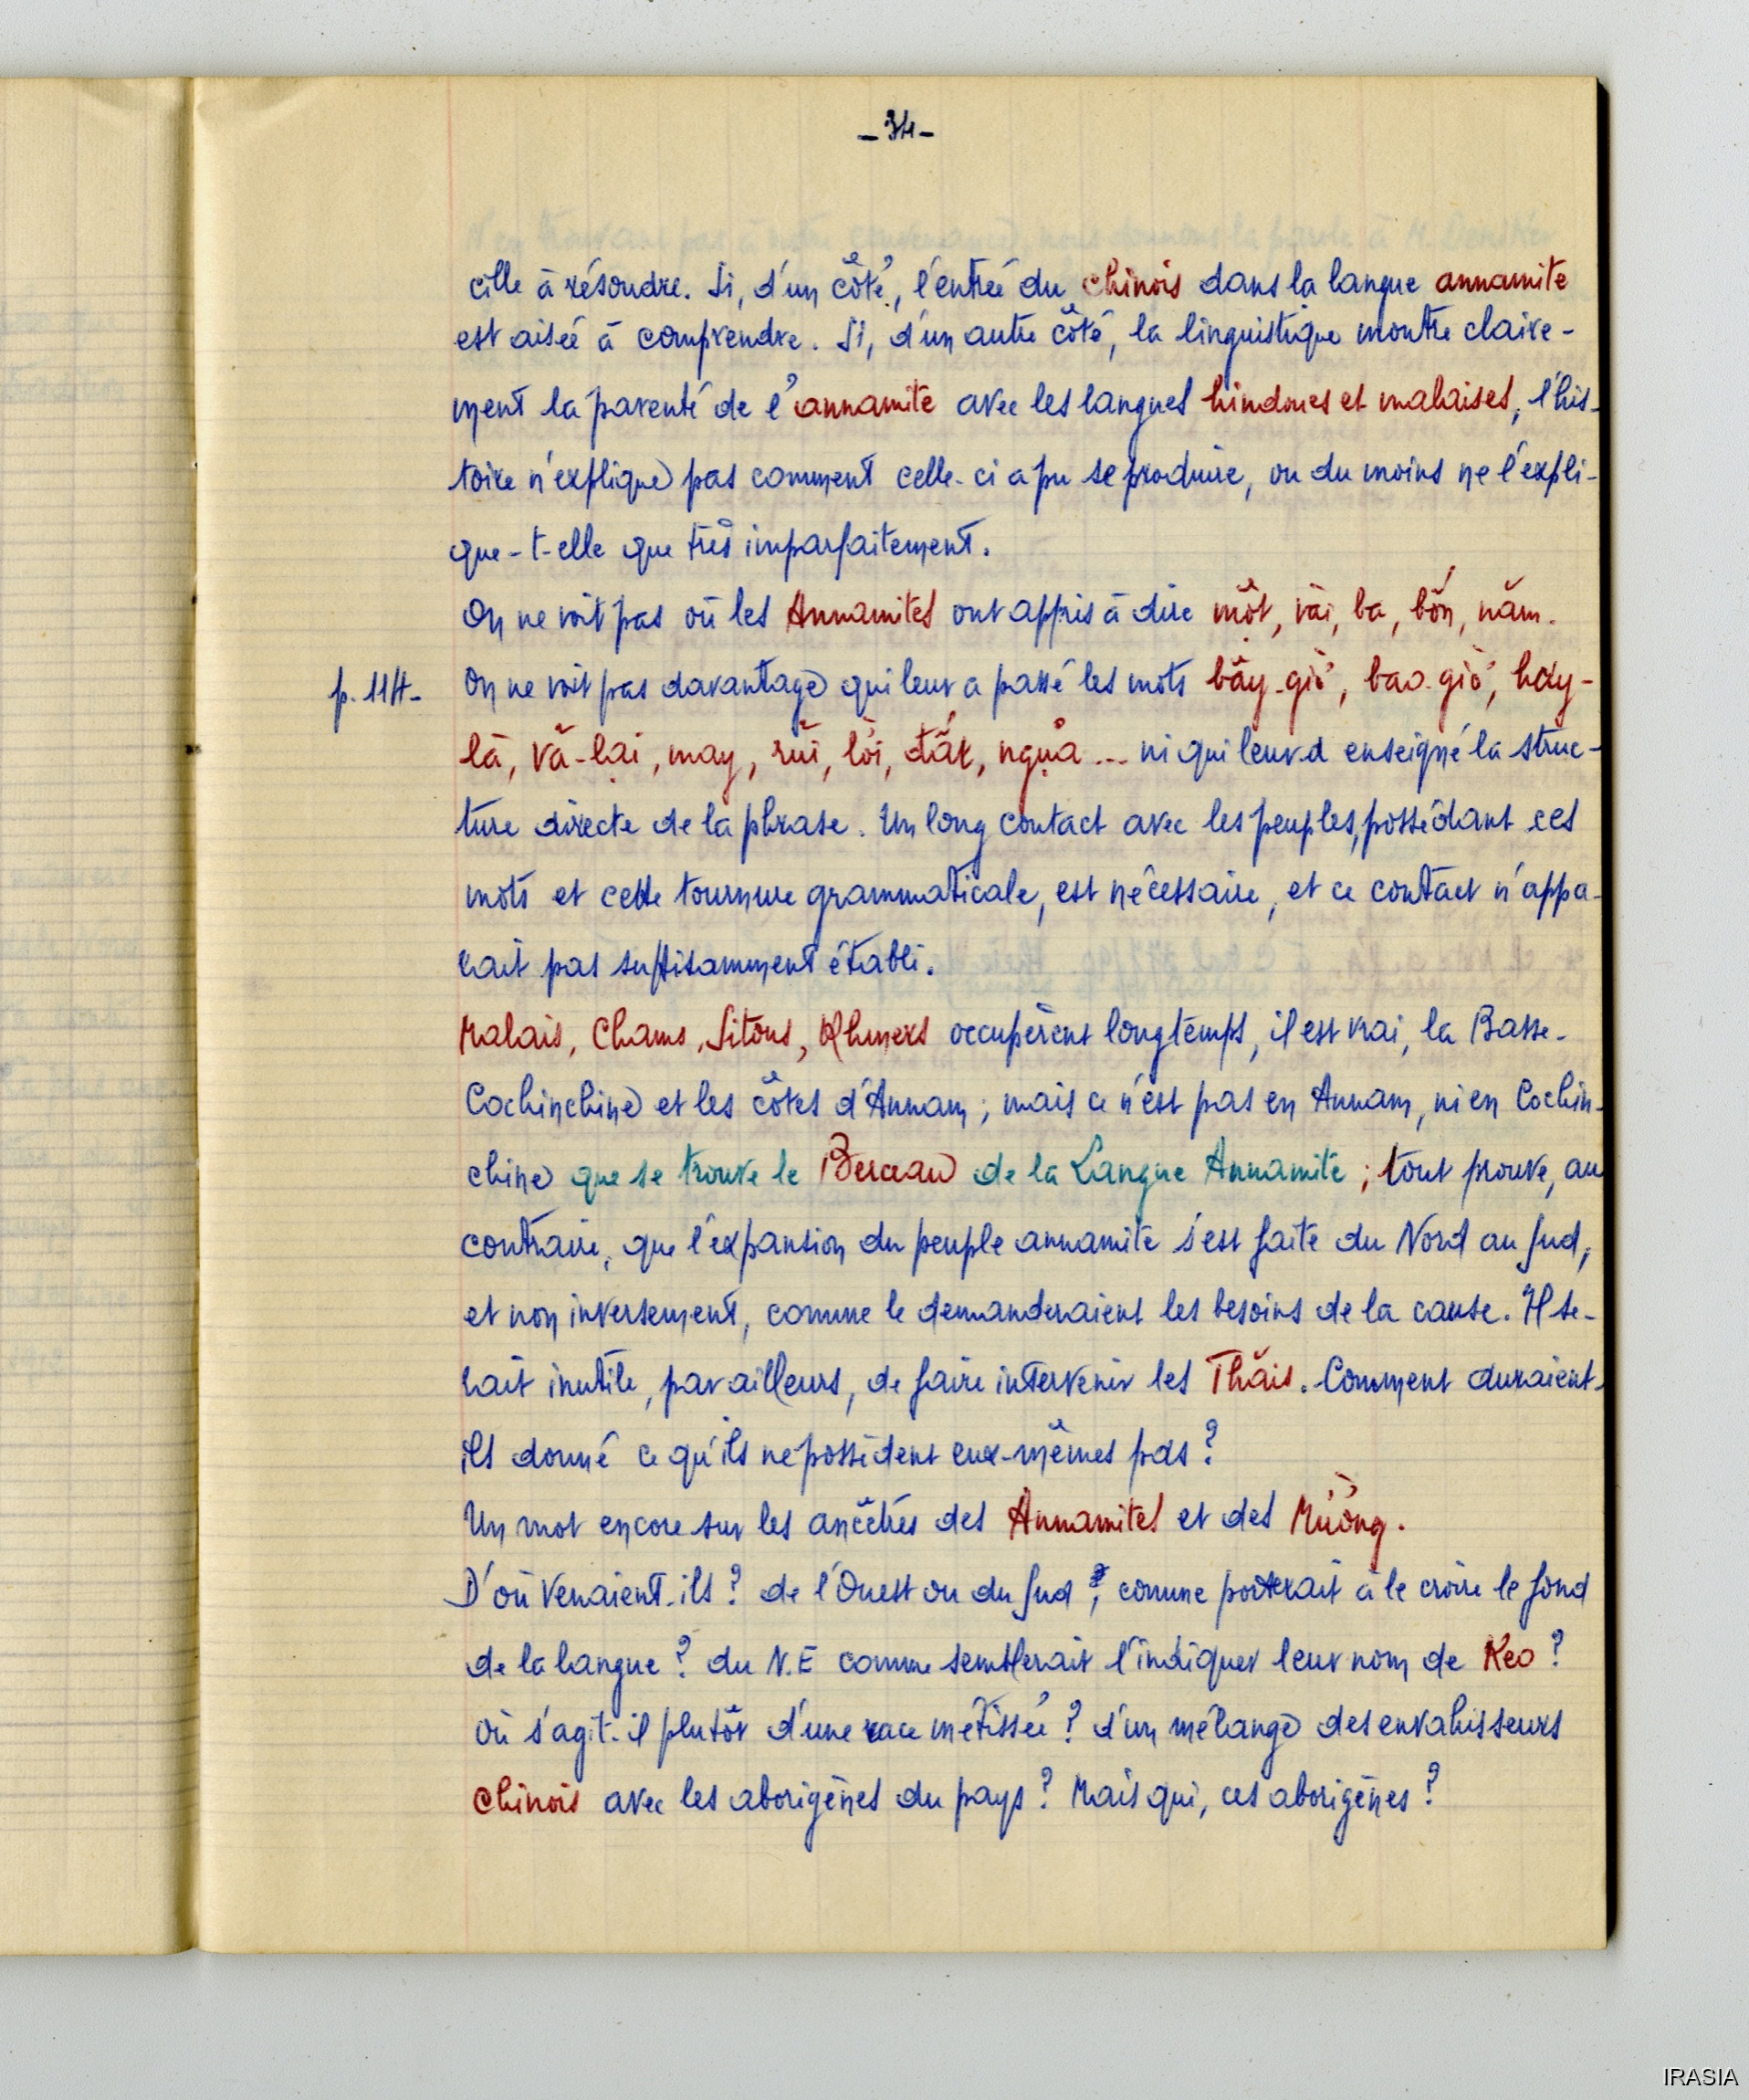 -34-
cille à résoudre. Si, d'un côté, l'entrée du chinois dans la langue annamite
est aisée à comprendre. Si, d'un autre côté, la linguistique montre claire-
ment la parenté de l'annamite avec les langues hindoues et malaises, l'his-
toire n'explique pas comment celle-ci a pu se produire, ou du moins ne l'expli-
que-t-elle que très imparfaitement.
On ne voit pas où les Annamites ont appris à dire một, vài, ba, bốn, năm.
p. 114- On ne voit pas davantage qui leur a passé les mots bây-giờ, bao-giờ, hay-
là, vả-lại, may, rủi, lời, đất, ngựa ... ni qui leur a enseigné la struc-
ture directe de la phrase. Un long contact avec les peuples, possédant ces
mots et cette tournure grammaticale, est nécessaire, et ce contact n'appa-
rait pas suffisamment établi.
Malais, Chams, Sitons, Khmers occupèrent longtemps, il est vrai, la Basse-
Cochinchine et les côtes d'Annam; mais ce n'est pas en Annam, ni en Cochin-
chine que se trouve le Berceau de la Langue Annamite; tout prouve, au
contraire, que l'expansion du peuple annamite s'est faite du Nord au Sud,
et non inversement, comme le demanderaient les besoins de la cause. Il se-
rait inutile, par ailleurs, de faire intervenir les Thăis. Comment auraient-
ils donné ce qu'ils ne possèdent eux-mêmes pas ?
Un mot encore sur les ancêtres des Annamites et des Mường.
D'où venaient-ils ? de l'Ouest ou du Sud, comme porterait à le croire le fond
de la langue ? du N.E comme semblerait l'indiquer leur nom de Keo ?
où s'agit-il plutôt d'une race métissée ? d'un mélange des envahisseurs
chinois avec les aborigènes du pays ? Mais qui, ces aborigènes ?
IRASIA